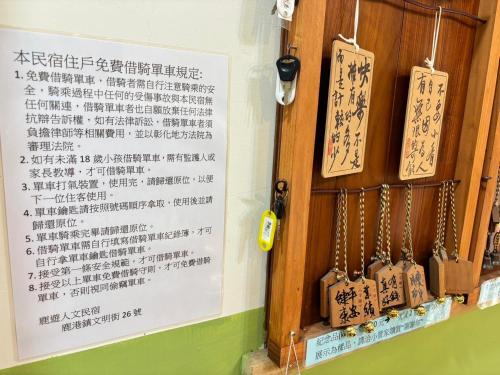 本民宿住戶免費借騎單車規定:
1. 免費借騎單車，借騎者需自行注意騎乘的安
全，騎乘過程中任何的受傷事故與本民宿無
任何關連，借騎單車者也自願放棄任何法律
抗辯告訴權，如有法律訴訟，借騎單車者須
負擔律師等相關費用，並以彰化地方法院為
審理法院。
2. 如有未滿 18 歲小孩借騎單車，需有監護人或
家長教導，才可借騎單車。
3. 單車打氣裝置，使用完，請歸還原位，以便
下一位住客使用。
4. 單車鑰匙請按照號碼順序拿取，使用後並請
歸還原位。
5. 單車騎乘完畢請歸還原位。
6. 借騎單車需自行填寫借騎單車紀錄簿，才可
自行拿單車鑰匙借騎單車。
7. 接受第一條安全規範，才可借騎單車。
8. 接受以上單車免費借騎守則，才可免費借騎
單車，否則視同偷竊單車。
鹿遊人文民宿
鹿港鎮文明街 26 號
快樂不是
擁有的多
而是計較的少
不要小看
自己因為人
有無限
健康
平安
業績
真好
紀念品
展示為樣品，請洽小管家